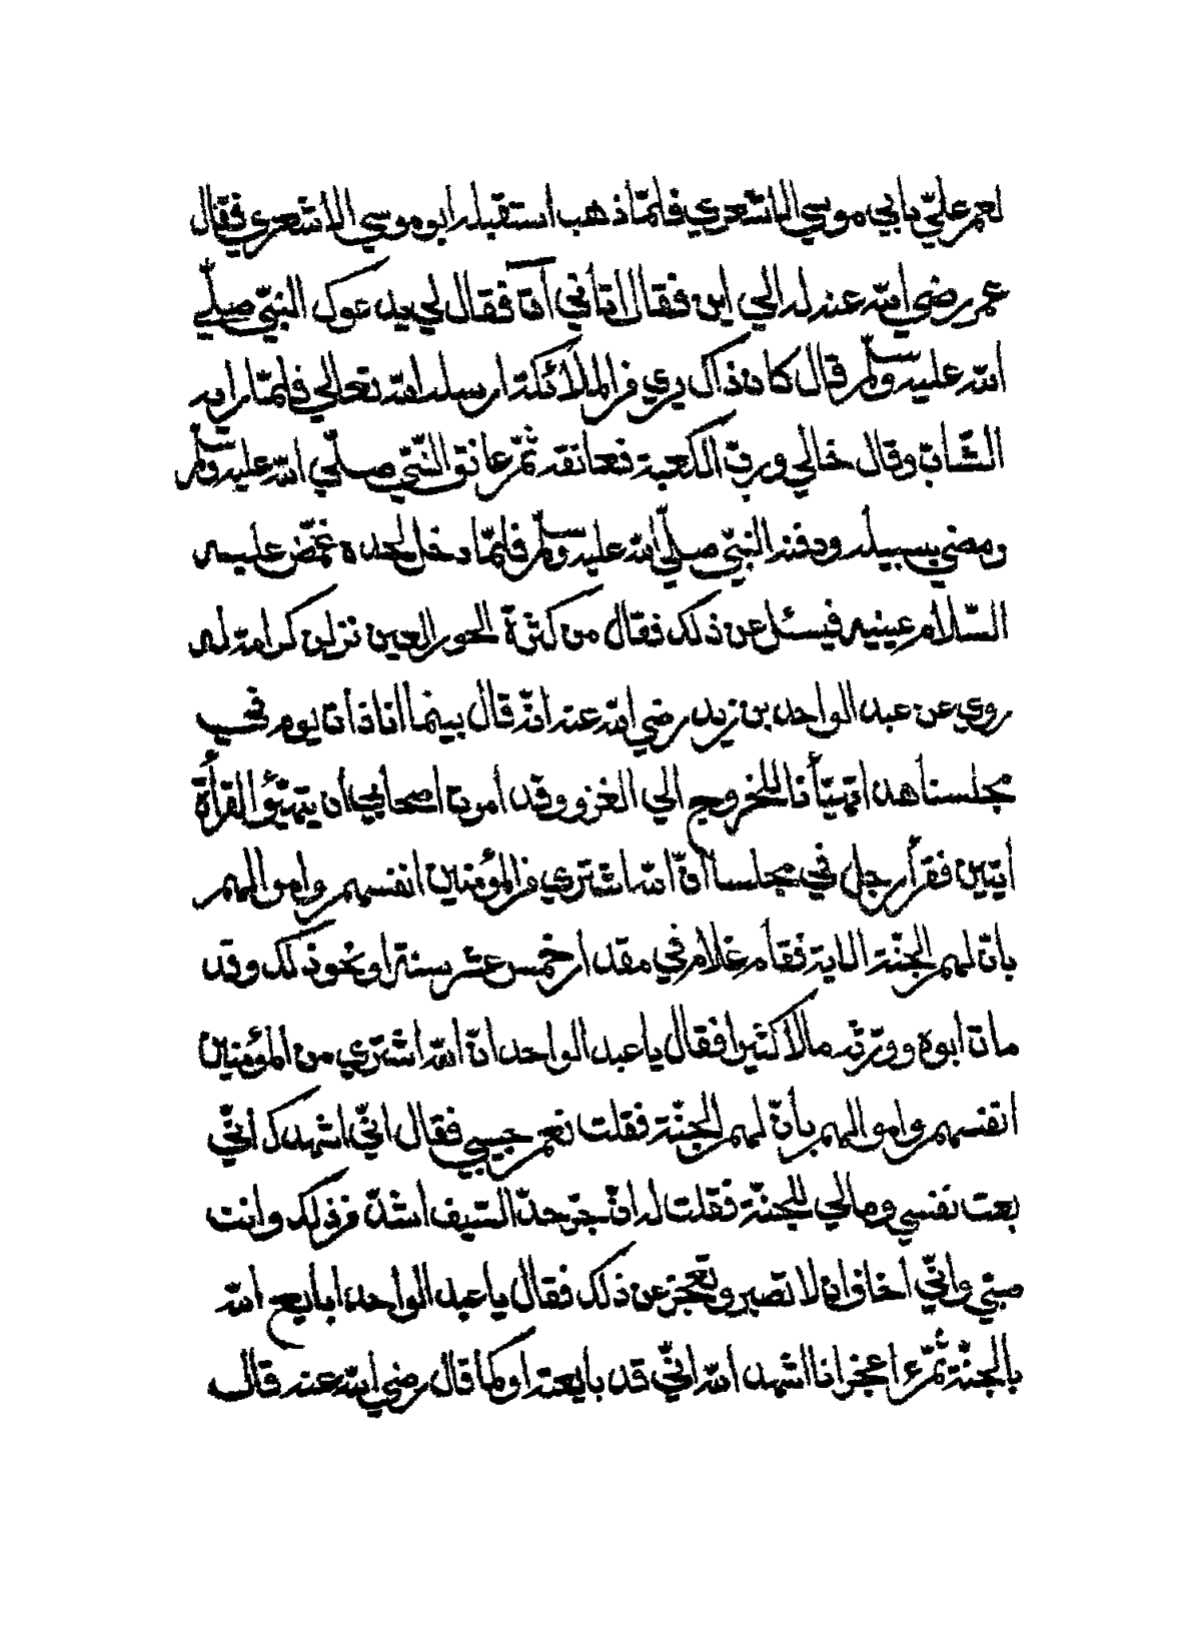 لعمر عليّ بابي موسي الاشعري فلمّا ذهب استقبله ابو موسي الاشعري فقال
عمر رضي الله عنه له الي اين فقال اتاني آت فقال لي يدعوك النبيّ صلّي
الله عليه وسلم قال كان ذاك يري من الملائكة ارسله الله تعالي فلمّا راه
الشابّ وقال خالي وربّ الكعبة فعانقه ثمّ عانق النبيّ صلّي الله عليه وسلم
ومضي بسبيله ودفنه النبيّ صلّي الله عليه وسلم فلمّا دخل لحده غمّض عليه
السّلام عينيه فيسئل عن ذلك فقال من كثرة الحور العين نزلن كرامة له
روي عن عبد الواحد بن زيد رضي الله عنه انّه قال بينما انا ذات يوم في
مجلسنا هذا تهيّأنا للخروج الي الغزو وقد أمرت اصحابي أن يتهيّؤا لقرأة
ايتين فقرأ رجل في مجلسنا انّ الله اشتري من المؤمنين انفسهم واموالهم
بانّ لهم الجنّة الاية فقام غلام في مقدار خمس عشر سنة او نحو ذلك وقد
مات ابوه وورّثه مالا كثيرا فقال يا عبد الواحد انّ الله اشتري من المؤمنين
انفسهم واموالهم بأنّ لهم الجنّة فقلت نعم حبيبي فقال انّي اشهدك انّي
بعت نفسي ومالي للجنّة فقلت له انّ حدّ السّيف اشدّ من ذلك وانت
صبيّ وانّي أخاف ان لا تصبر وتعجز عن ذلك فقال يا عبد الواحد ابايع الله
بالجنّة ثمّ اعجز انا اشهد الله انّي قد بايعته او كما قال رضي الله عنه قال